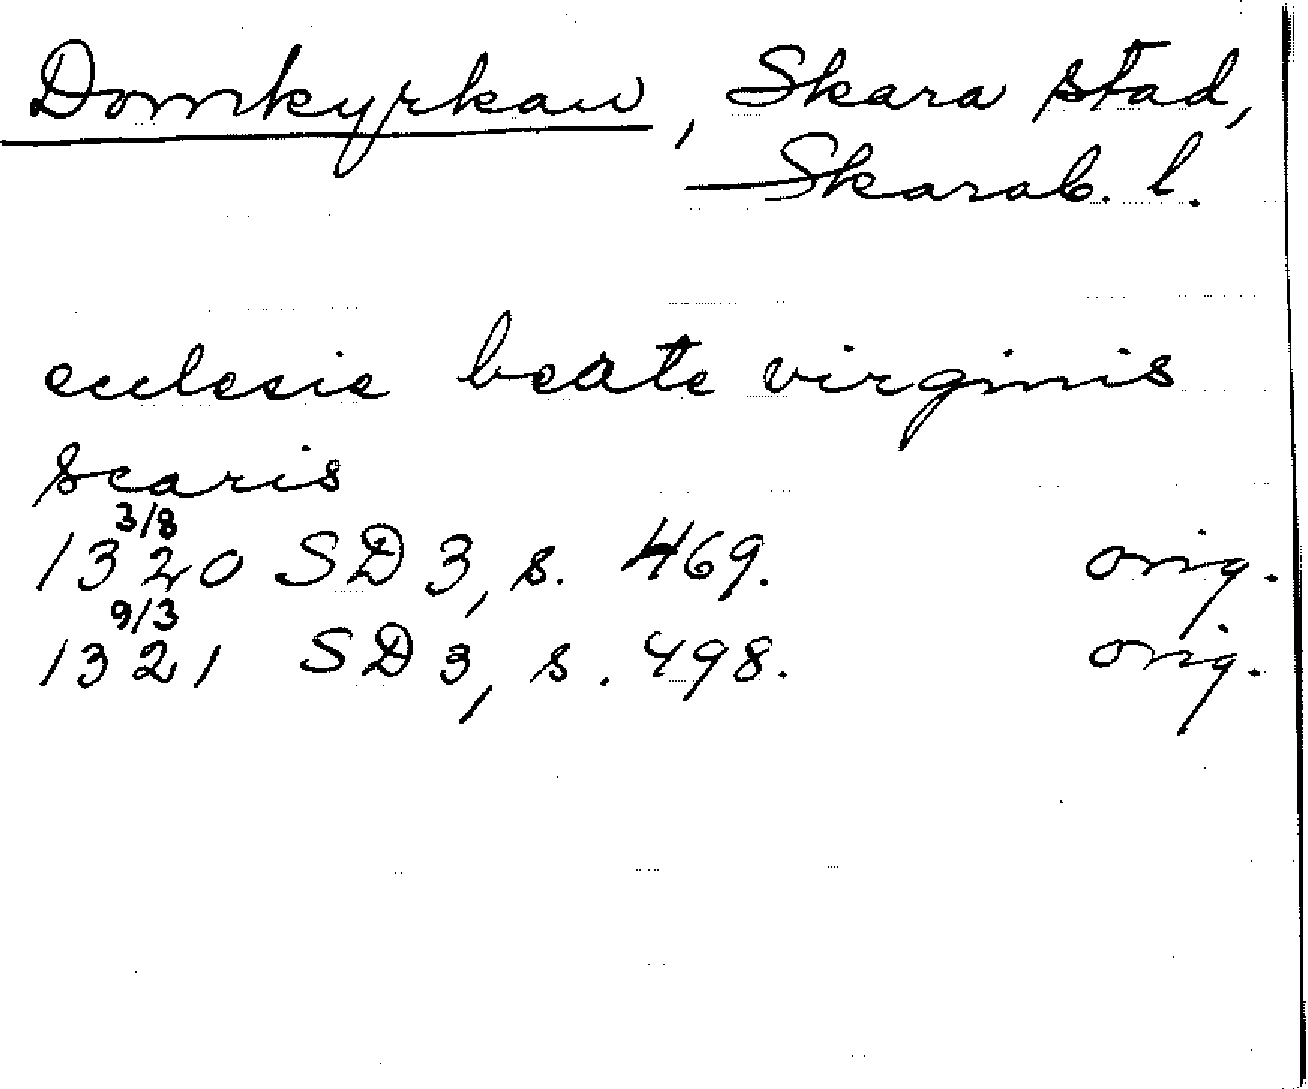 Domkyrkan, Skara stad,
Skarab. l.
ecclesie beate virginis
scaris
3/8
1320 SD 3, s. 469. orig.
9/3
1321 SD 3, s. 498. orig.